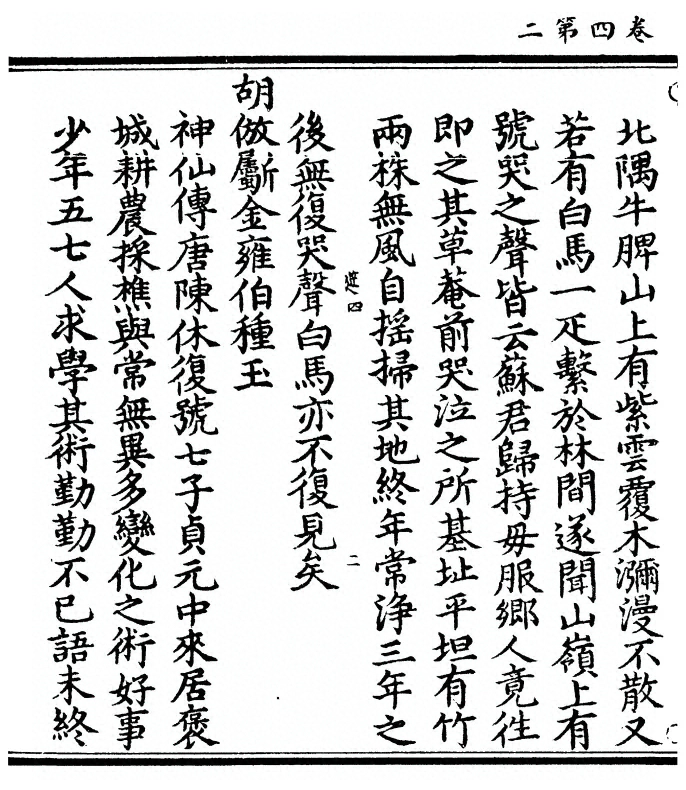 卷四第二
北隅牛脾山上有紫雲覆木瀰漫不散又
若有白馬一疋繫於林間遂聞山嶺上有
號哭之聲皆云蘇君歸持毋服鄉人竟徃
即之其草菴前哭泣之所基址平坦有竹
兩株無風自揺掃其地終年常浄三年之
後無復哭聲白馬亦不復見矣
遊四
二
胡倣斸金雍伯種玉
神仙傳唐陳休復號七子貞元中來居褒
城耕農採樵與常無異多變化之術好事
少年五七人求學其術勤勤不已語未終